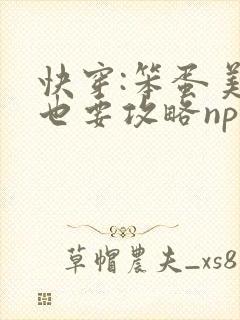 快穿:笨蛋美
也要攻略np
草帽農夫_xs8